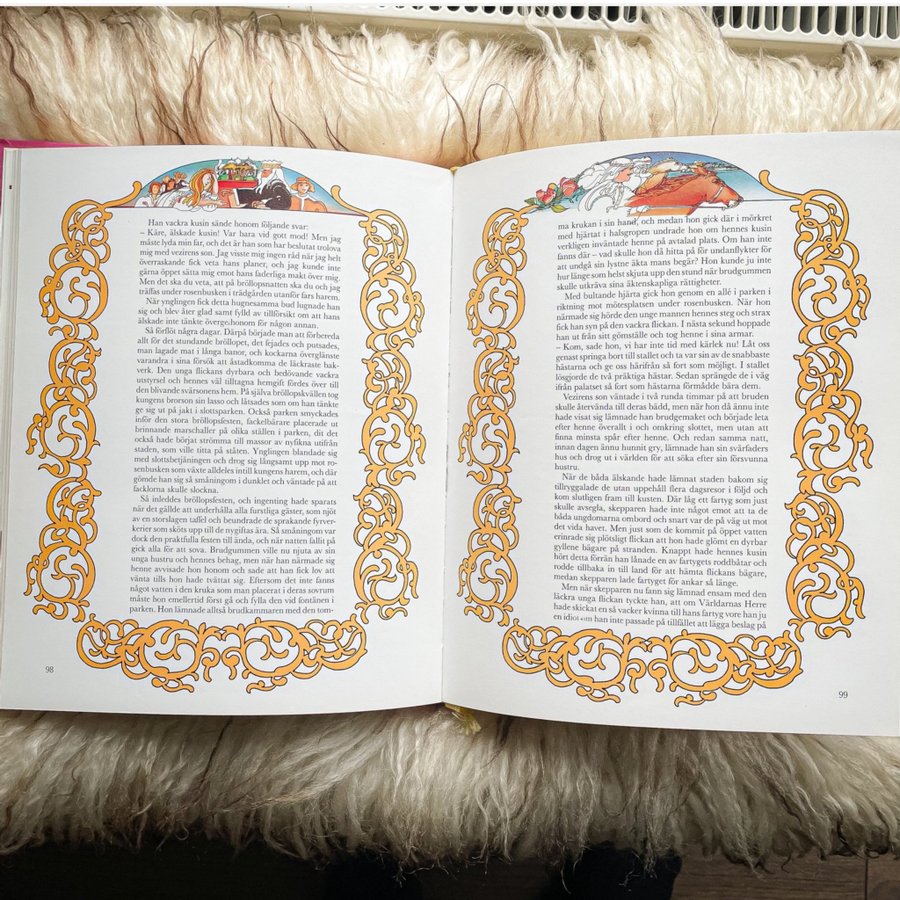 Han vackra kusin sände honom följande svar:
– Käre, älskade kusin! Var bara vid gott mod! Men jag
måste lyda min far, och det är han som har beslutat trolova
mig med vezirens son. Jag visste mig ingen råd när jag helt
överraskande fick veta hans planer, och jag kunde inte
gärna öppet sätta mig emot hans faderliga makt över mig.
Men det ska du veta, att på bröllopsnatten ska du och jag
träffas under rosenbusken i trädgården utanför fars harem.
När ynglingen fick detta hugnesamma bud lugnade han
sig och blev åter glad samt fylld av tillförsikt om att hans
älskade inte tänkte övergehonom för någon annan.
Så förflöt några dagar. Därpå började man att förbereda
allt för det stundande bröllopet, det fejades och putsades,
man lagade mat i långa banor, och kockarna överglänste
varandra i sina försök att åstadkomma de läckraste bak-
verk. Den unga flickans dyrbara och bedövande vackra
utstyrsel och hennes väl tilltagna hemgift fördes över till
den blivande svärsonens hem. På själva bröllopskvällen tog
kungens brorson sin lasso och låtsades som om han tänkte
ge sig ut på jakt i slottsparken. Också parken smyckades
inför den stora bröllopsfesten, fackelbärare placerade ut
brinnande marschaller på olika ställen i parken, dit det
också hade börjat strömma till massor av nyfikna utifrån
staden, som ville titta på ståten. Ynglingen blandade sig
med slottsbetjäningen och drog sig långsamt upp mot ro-
senbusken som växte alldeles intill kungens harem, och där
gömde han sig så småningom i dunklet och väntade på att
facklorna skulle slockna.
Så inleddes bröllopsfesten, och ingenting hade sparats
när det gällde att underhålla alla furstliga gäster, som njöt
av en storslagen taffel och beundrade de sprakande fyrver-
kerier som sköts upp till de nyvigftas ära. Så småningom var
dock den praktfulla festen till ända, och när natten fallit på
gick alla för att sova. Brudgummen ville nu njuta av sin
unga hustru och hennes behag, men när han närmade sig
henne avvisade hon honom och sade att han fick lov att
vänta tills hon hade tvättat sig. Eftersom det inte fanns
något vatten i den kruka som man placerat i deras sovrum
måste hon emellertid först gå och fylla den vid fontänen i
parken. Hon lämnade alltså brudkammaren med den tom-
98
ma krukan i sin hand, och medan hon gick där i mörkret
med hjärtat i halsgropen undrade hon om hennes kusin
verkligen inväntade henne på avtalad plats. Om han inte
fanns där – vad skulle hon då hitta på för undanflykter för
att undgå sin lystne äkta mans begär? Hon kunde ju inte
hur länge som helst skjuta upp den stund när brudgummen
skulle utkräva sina äktenskapliga rättigheter.
Med bultande hjärta gick hon genom en allé i parken i
riktning mot mötesplatsen under rosenbusken. När hon
närmade sig hörde den unge mannen hennes steg och strax
fick han syn på den vackra flickan. I nästa sekund hoppade
han ut från sitt gömställe och tog henne i sina armar.
– Kom, sade hon, vi har inte tid med kärlek nu! Låt oss
genast springa bort till stallet och ta var sin av de snabbaste
hästarna och ge oss härifrån så fort som möjligt. I stallet
lösgjorde de två präktiga hästar. Sedan sprängde de i väg
ifrån palatset så fort som hästarna förmådde bära dem.
Vezirens son väntade i två runda timmar på att bruden
skulle återvända till deras bädd, men när hon då ännu inte
hade visat sig lämnade han brudgemaket och började leta
efter henne överallt i och omkring slottet, men utan att
finna minsta spår efter henne. Och redan samma natt,
innan dagen ännu hunnit gry, lämnade han sin svärfaders
hus och drog ut i världen för att söka efter sin försvunna
hustru.
När de båda älskande hade lämnat staden bakom sig
tillryggalade de utan uppehåll flera dagsresor i följd och
kom slutligen fram till kusten. Där låg ett fartyg som just
skulle avsegla, skepparen hade inte något emot att ta de
båda ungdomarna ombord och snart var de på väg ut mot
det vida havet. Men just som de kommit på öppet vatten
erinrade sig plötsligt flickan att hon hade glömt en dyrbar
gyllene bägare på stranden. Knappt hade hennes kusin
hört detta förrän han lånade en av fartygets roddbåtar och
rodde tillbaka in till land för att hämta flickans bägare,
medan skepparen lade fartyget för ankar så länge.
Men när skepparen nu fann sig lämnad ensam med den
läckra unga flickan tyckte han, att om Världarnas Herre
hade skickat en så vacker kvinna till hans fartyg vore han ju
en idiot om han inte passade på tillfället att lägga beslag på
99